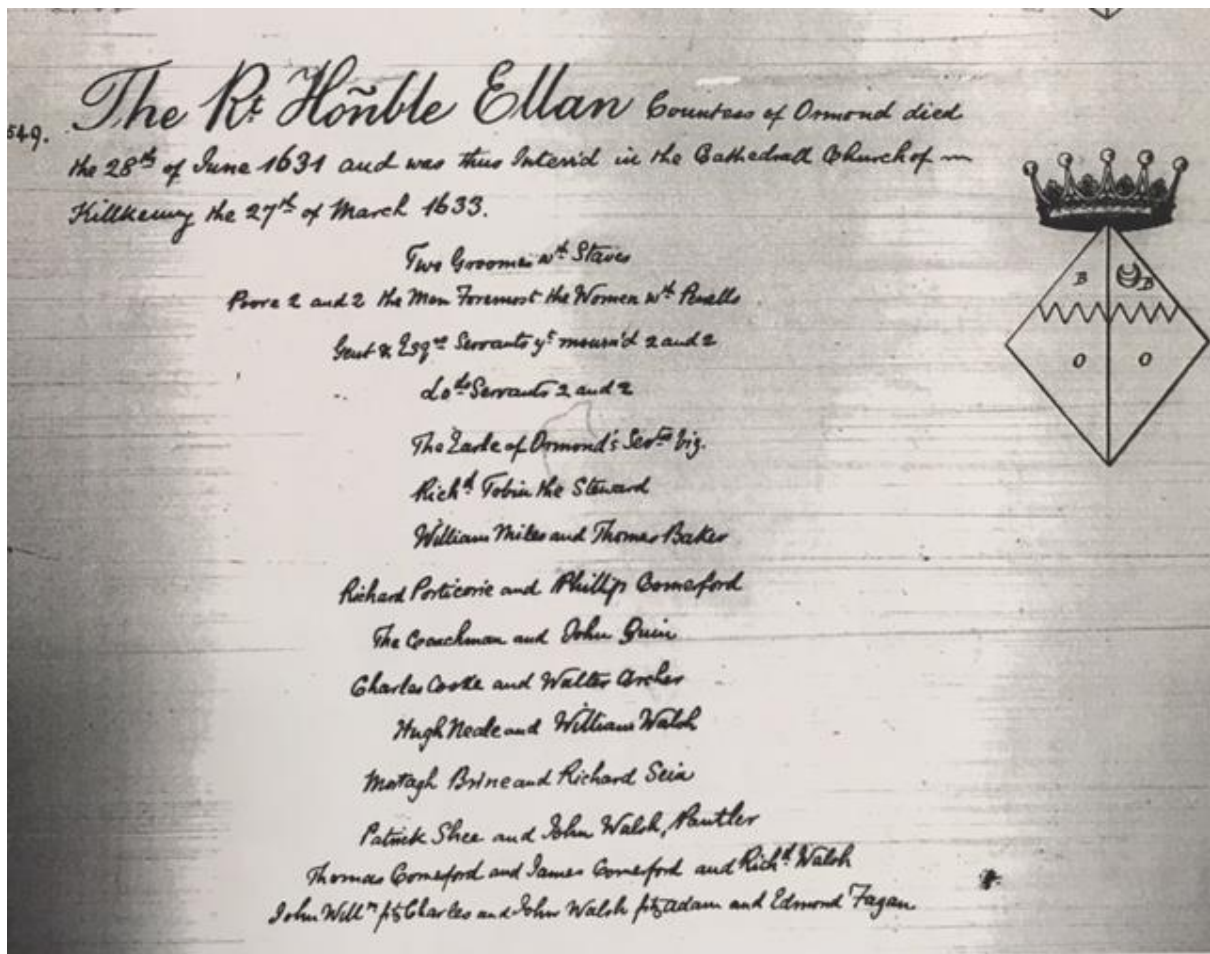 549.
The Rt Hoñble Ellan Countess of Ormond died
the 28th of June 1631 and was thus Interr'd in the Cathedrall Church of
Killkenny the 27th of March 1633.
Two Groomes wt Staves
Poore 2 and 2 the Men Foremost the Women wt
Gent & Esqrs Servants yt mourn'd 2 and 2
Lods Servants 2 and 2
The Earle of Ormond's Servts viz.
Richd Tobin the Steward
William Miles and Thomas Baker
Richard Porticorie and Phillip Comerford
The Coachman and John Guin
Charles Cooke and Walter Archer
Hugh Neale and William Walsh
Mortagh Brine and Richard
Patrick Shee and John Walsh, Pantler
Thomas Comerford and James Comerford and Richd Walsh
John Willm fitz Charles and John Walsh fitz Adam and Edmond Fagan
B B
O O